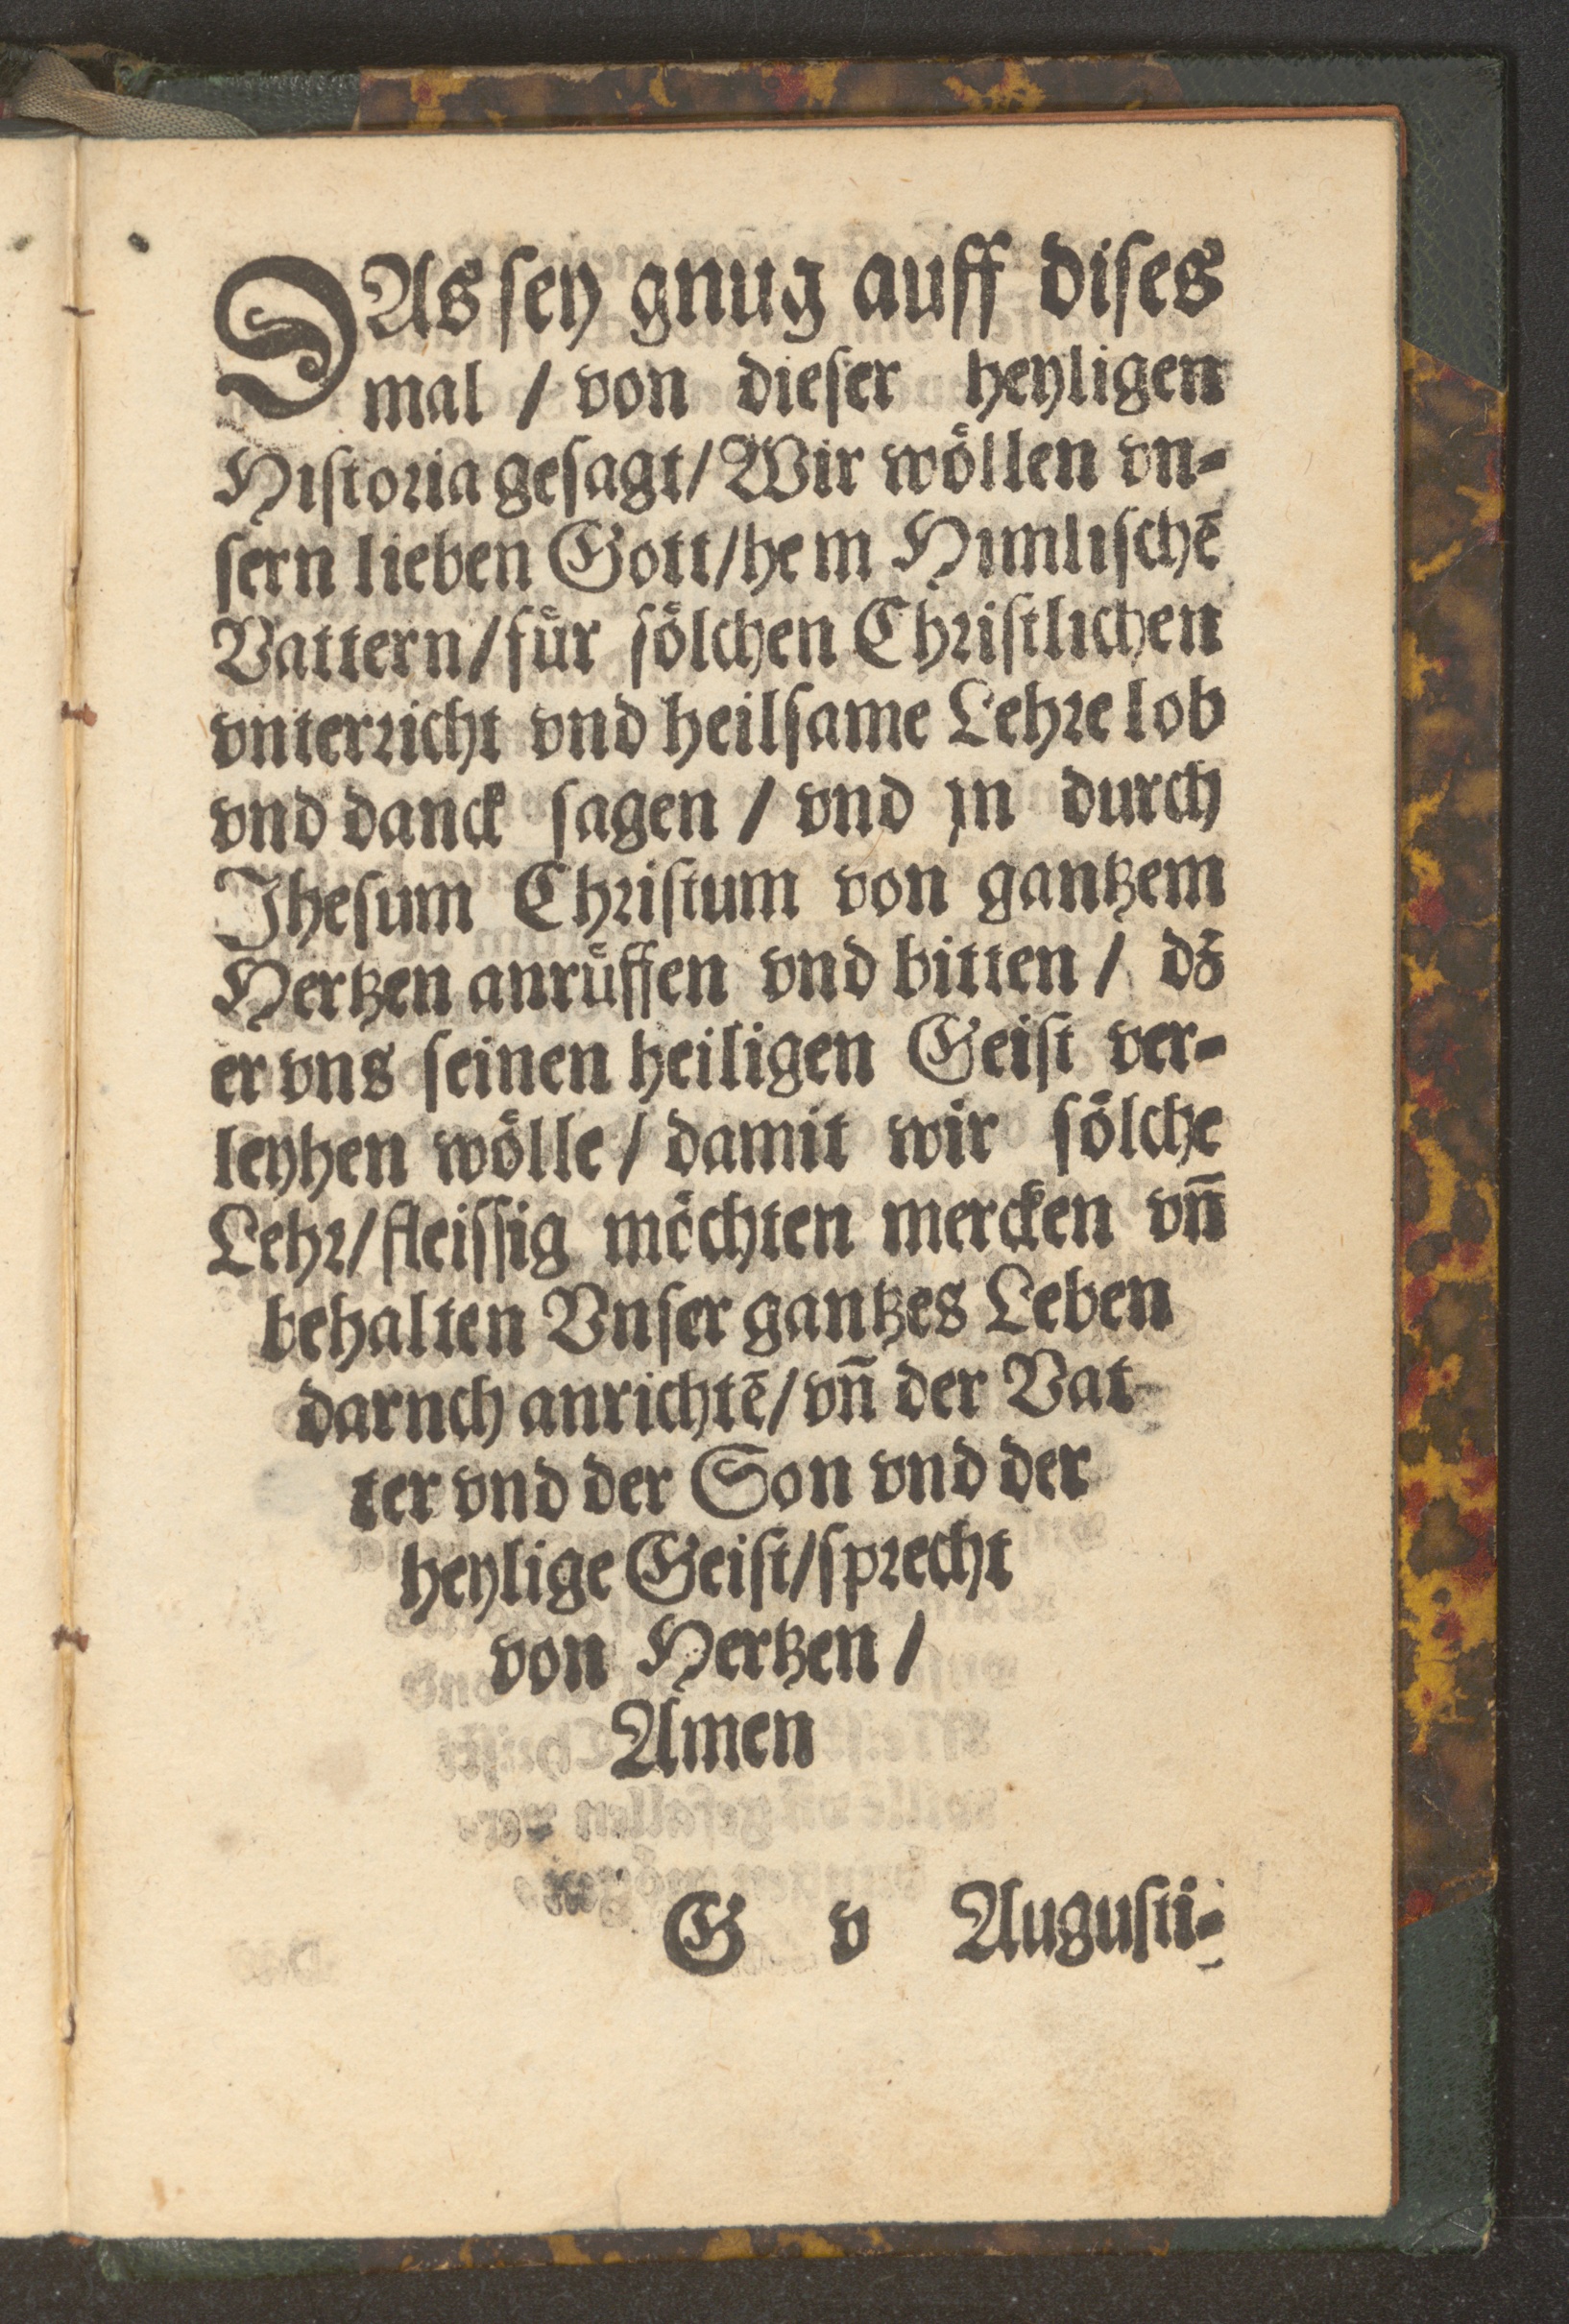 DAs ſey gnug auff diſes
mal / von dieſer heyligen
Hiſtoria geſagt/ Wir wöllen vn⸗
ſern lieben Gott/hem Himliſchē
Vattern/für ſölchen Chriſtlichen
vnterricht vnd heilſame Lehre lob
vnd danck ſagen / vnd jn durch
Jheſum Chriſtum von gantzem
Hertzen anrüffen vnd bitten / dz
er vns ſeinen heiligen Geiſt ver⸗
leyhen wölle / damit wir ſölche
Lehr/fleiſſig möchten mercken vn̄
behalten Vnſer gantzes Leben
darnch anrichtē/ vn̄ der Vat⸗
ter vnd der Son vnd der
heylige Geiſt/ſprecht
von Hertzen /
Amen
G v Auguſti⸗